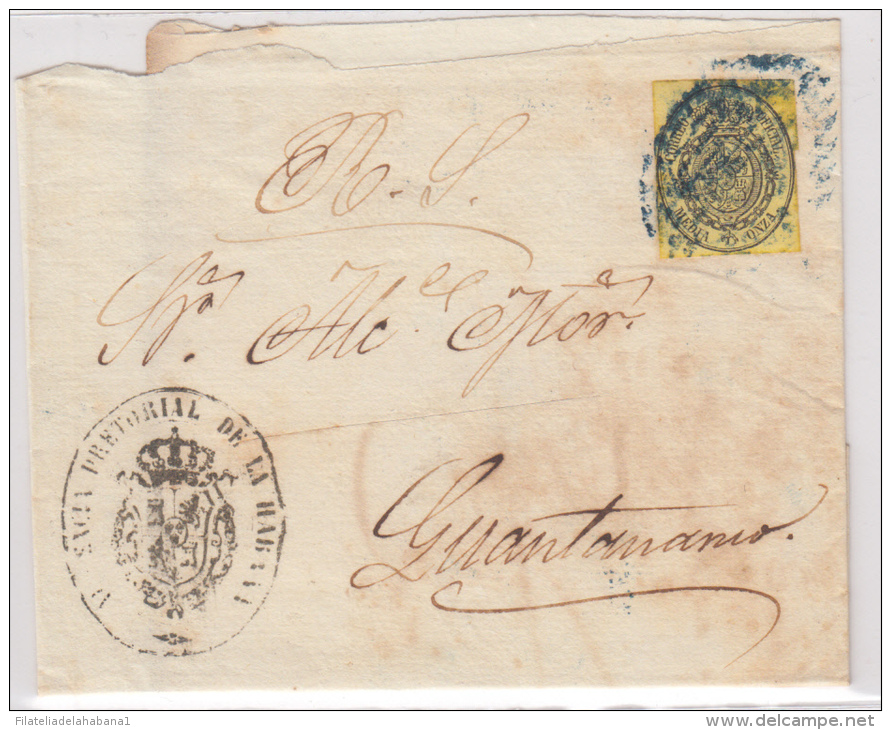 R. S.
CORREO OFICIAL
MEDIA ONZA
Sr. Alce. Mor.
PRETORIAL DE LA HABANA
Guantanamo.
Filateliadelahabana1
www.delcampe.net